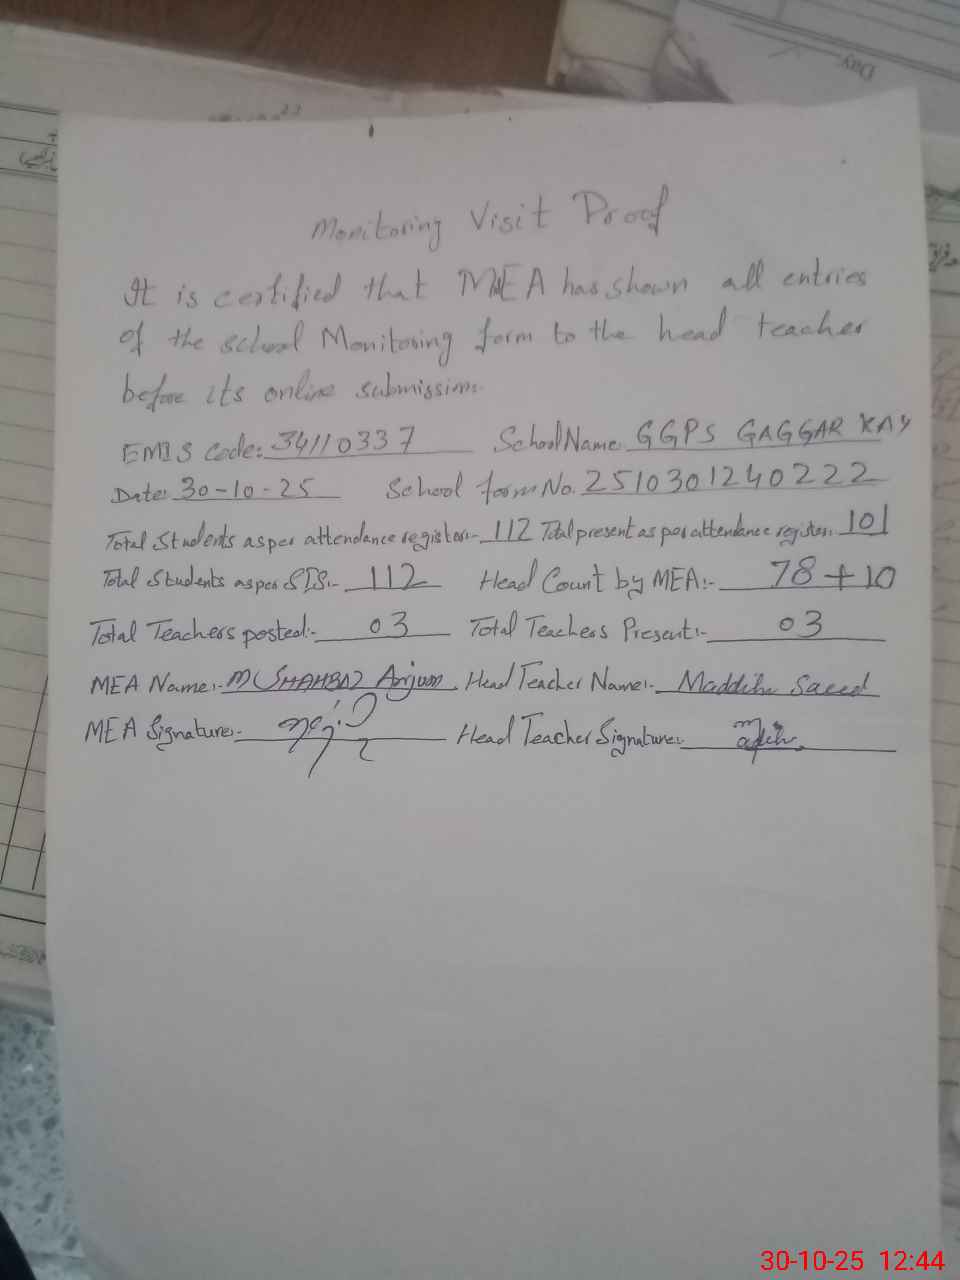 Day
Monitoring Visit Proof
It is certified that MEA has shown all entries
of the school Monitoring form to the head teacher
before its online submission.
EMIS Code:- 34110337 School Name GGPS GAGGAR KAY
Date: 30-10-25 School form No. 2510301240222
Total Students as per attendance register:- 112 Total present as per attendance register:- 101
Total Students as per SIS:- 112 Head Count by MEA:- 78+10
Total Teachers posted:- 03 Total Teachers Present:- 03
MEA Name:- M SHAHBAZ Anjum Head Teacher Name:- Maddiha Saeed
MEA Signature:- Head Teacher Signature:-
30-10-25 12:44